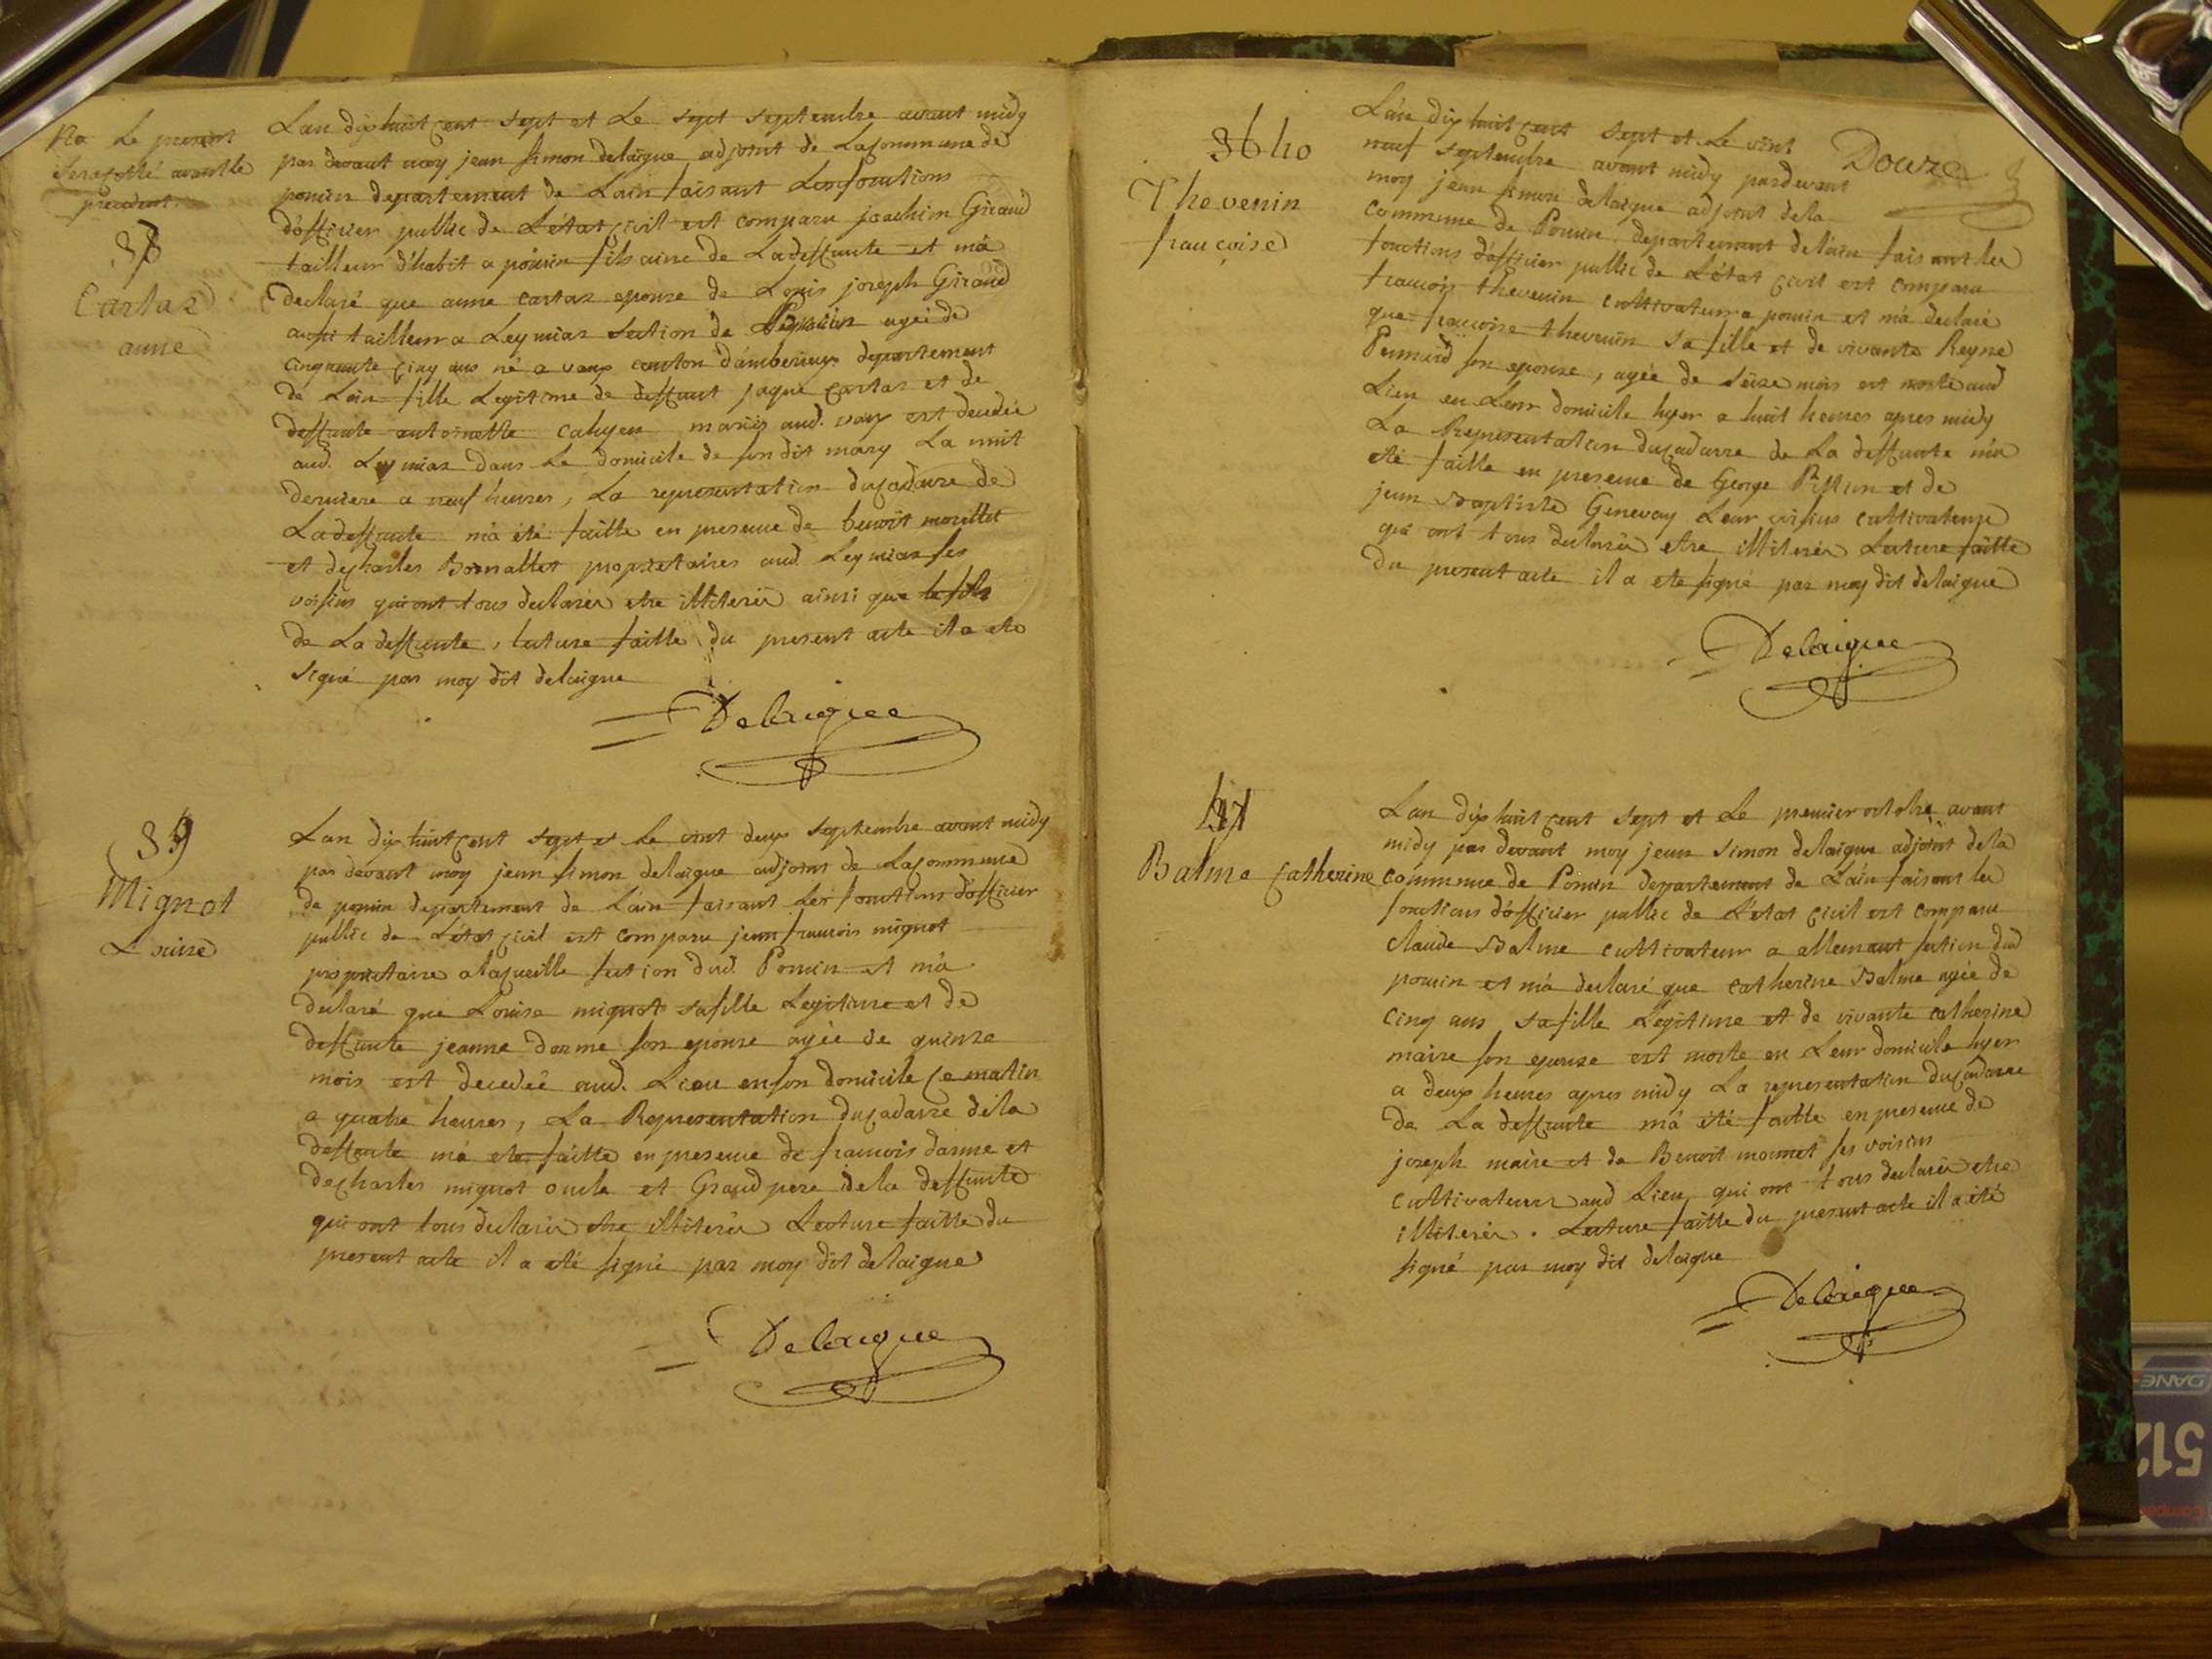 No Le present
sera porté avant le
precedent
38
Cartaz
anne
Lan dix huit cent sept et Le sept septembre avant midy
par devant moy jean simon delaigue adjoint de La commune de
poncin departement de Lain faisant Les fonctions
d'officier public de L'état civil est comparu joachim Giraud
tailleur d'habit a poncin fils ainé de La deffunte et m'a
declaré que anne cartaz epouse de Louis joseph Giraud
aussi tailleur a Leymiaz section de agée de
cinquante cinq ans né a vaux canton d'amberieux departement
de Lain fille Legitime de deffunt jaque cartaz et de
deffunte antoinette mariés aud. vaux est decedée
aud. Leymiaz dans Le domicile de son dit mary La nuit
derniere a neuf heures, La representation du cadavre de
La deffunte m'a été faitte en presence de benoit morillet
et de charles Bonnallet proprietaires aud Leymiaz ses
voisins qui ont tous declarés etre illiterés ainsi que le fils
de La deffunte, lecture faitte du present acte il a ete
signé par moy dit delaigue
Delaigue
39
Mignot
Louise
Lan dix huit cent sept et Le vint deux septembre avant midy
par devant moy jean simon delaigue adjoint de La commune
de poncin departement de Lain faisant Les fonctions d'officier
public de L'état civil est comparu jean francois mignot
proprietaire a la cueille section dud. Poncin et m'a
declaré que Louise mignot sa fille Legitime et de
deffunte jeanne darme son epouse agée de quinze
mois est decedée aud. Lieu en son domicile ce matin
a quatre heures, La Representation du cadavre de la
deffunte m'a ete faitte en presence de francois darme et
de charles mignot oncle et Grand pere de la deffunte
qui ont tous declarés etre illiterés Lecture faitte du
present acte il a eté signé par moy dit delaigue
Delaigue
40
Thevenin
francoise
Douze
L'an dix huit cent sept et Le vint
neuf septembre avant midy pardevant
moy jean simon delaigue adjoint de la
commune de Poncin departement de lain faisant les
fonctions d'officier public de L'état civil est comparu
francois thevenin cultivateur a poncin et m'a declaré
que francoise thevenin sa fille et de vivante Reyne
son epouse, agée de seize mois est morte aud
Lieu en Leur domicile hyer a huit heures apres midy
La Representation du cadavre de La deffunte m'a
eté faitte en presence de George et de
jean Baptiste Genevay Leur voisins cultivateurs
qui ont tous declarés etre illiterés Lecture faitte
du present acte il a ete signé par moy dit delaigue
Delaigue
41
Balme Catherine
Lan dix huit cent sept et Le premier octobre avant
midy par devant moy jean simon delaigue adjoint de la
commune de Poncin departement de Lain faisant les
fonctions d'officier public de L'état civil est comparu
claude Balme cultivateur a allemant section dud
poncin et m'a declaré que catherine Balme agée de
cinq ans sa fille Legitime et de vivante catherine
maire son epouse est morte en Leur domicile hyer
a deux heures apres midy La representation du cadavre
de La deffunte m'a été faitte en presence de
joseph maire et de Benoit ses voisins
cultivateurs aud Lieu qui ont tous declarés etre
illiterés. Lecture faitte du present acte il a été
signé par moy dit delaigue
Delaigue
DANE
512